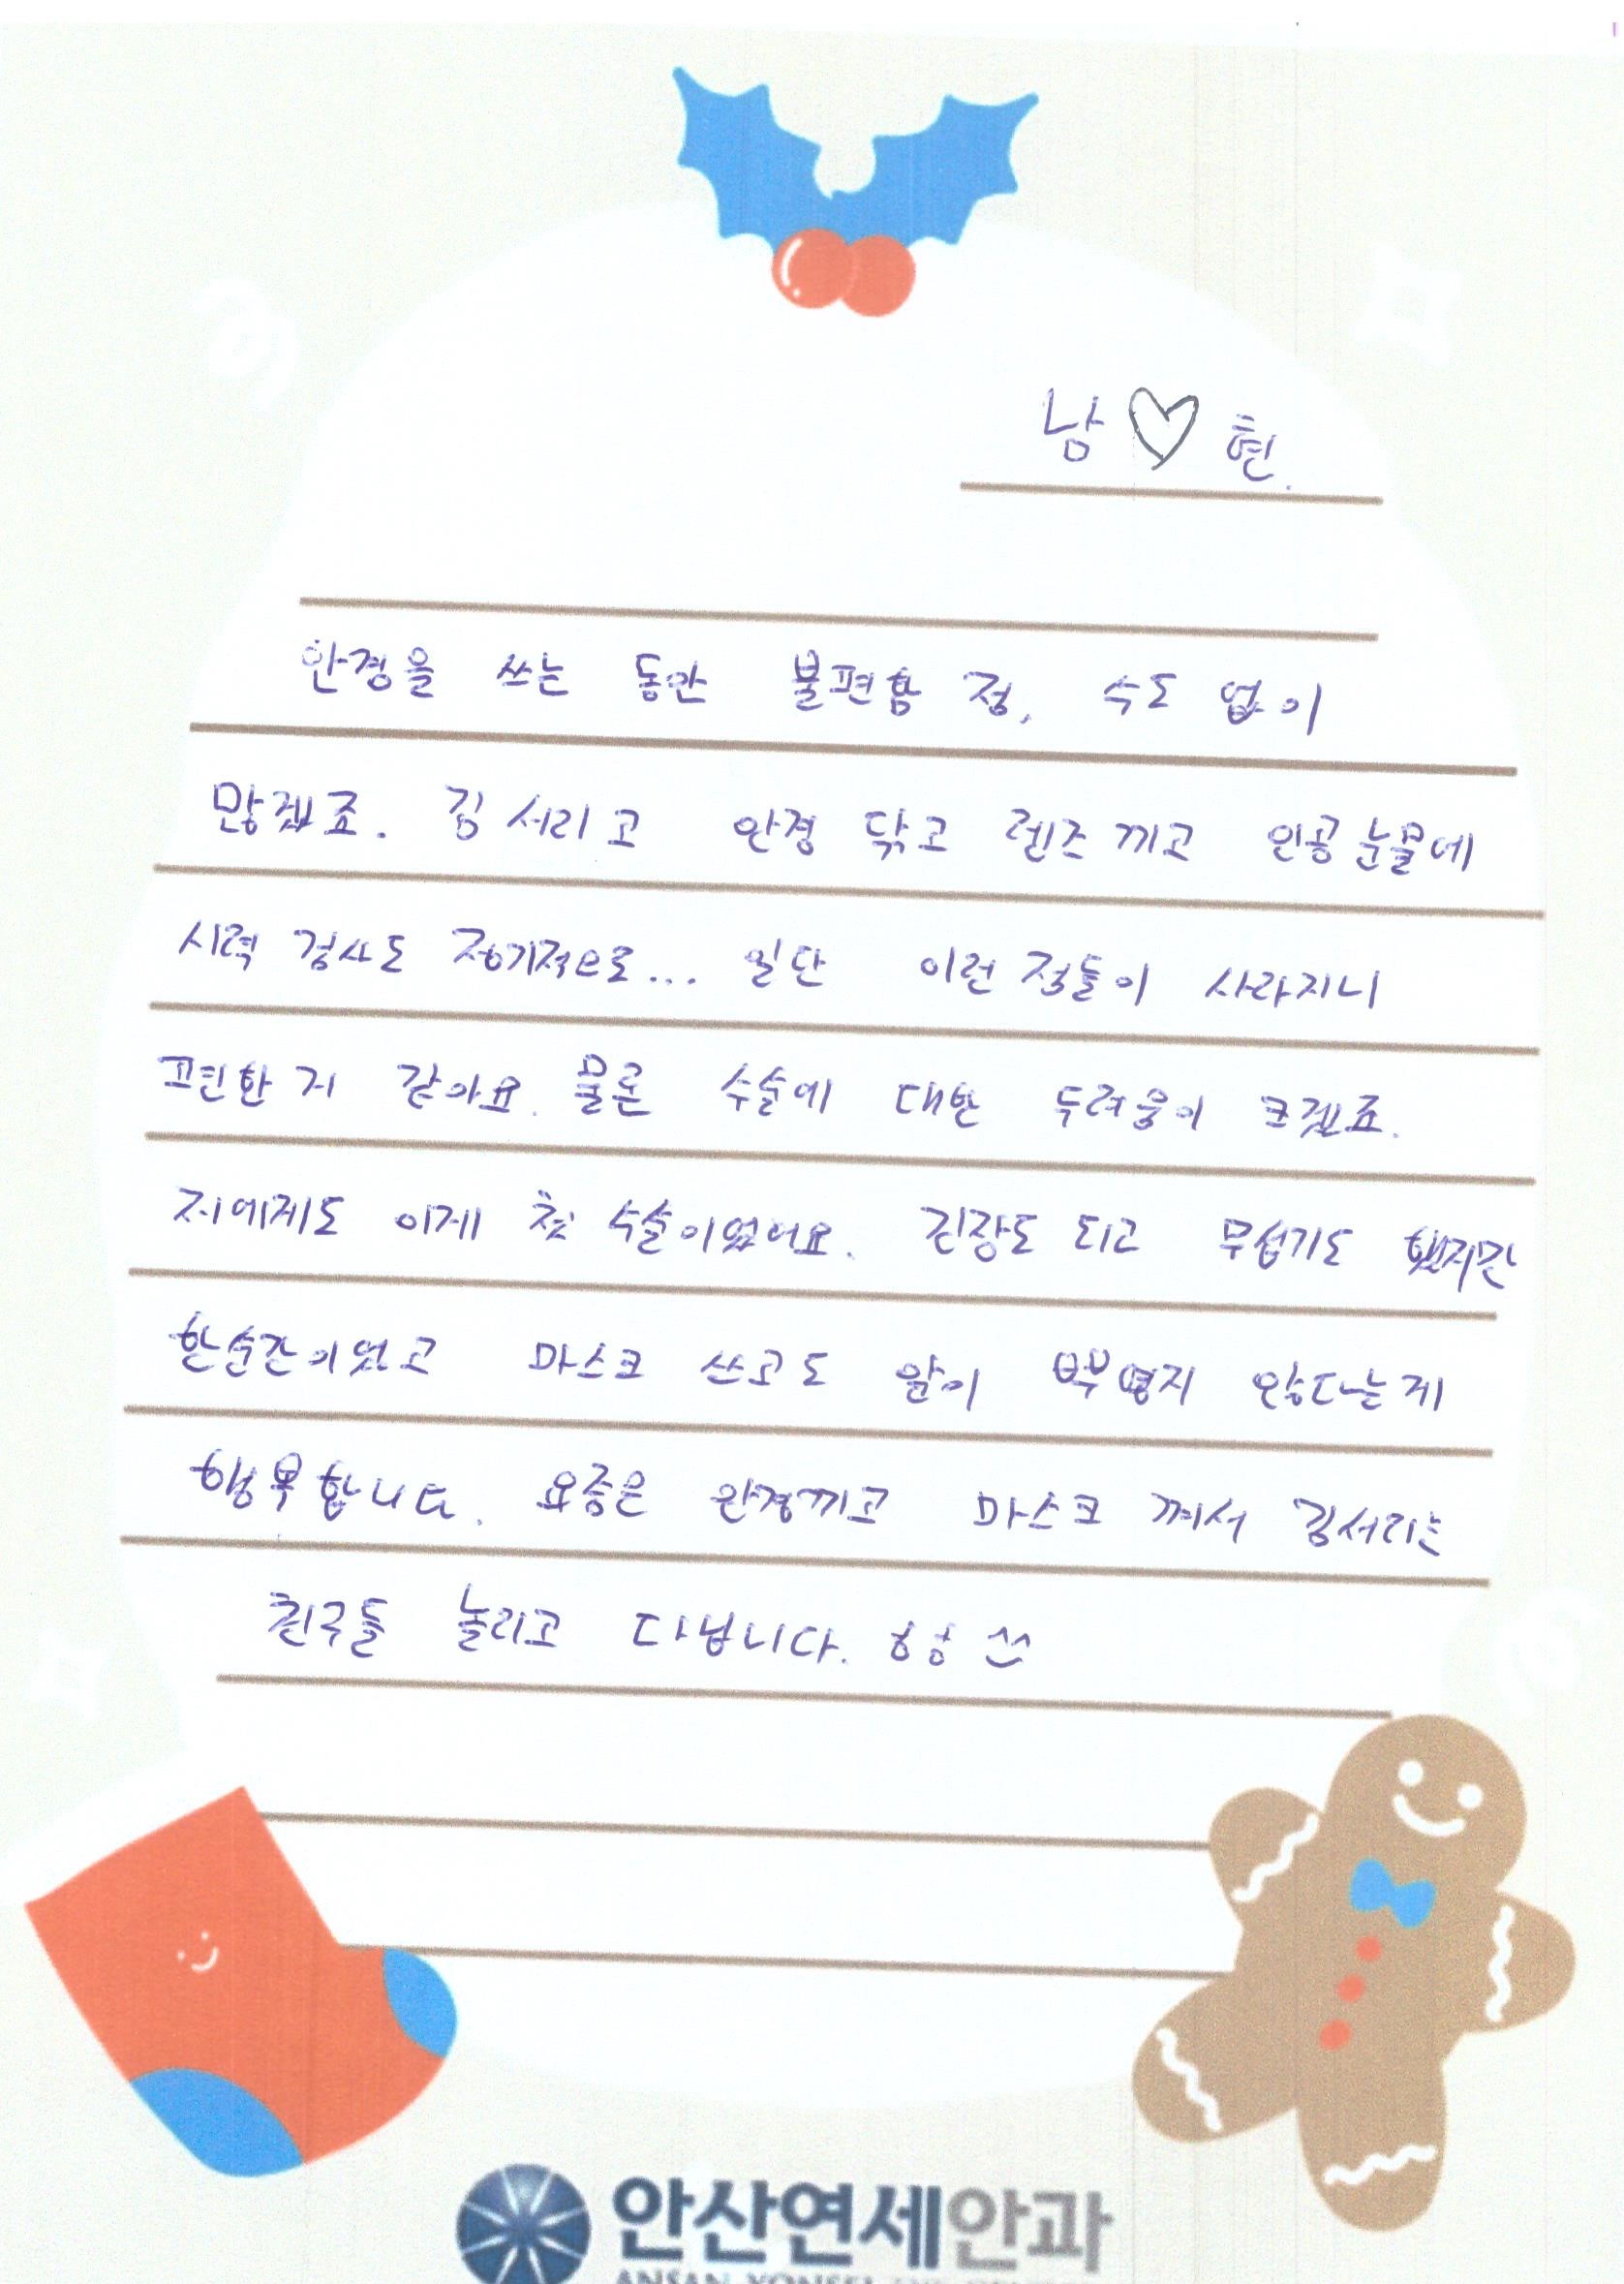 남♡현.
안경을 쓰는 동안 불편함 점, 수도 없이
많겠죠. 김 서리고 안경 닦고 렌즈 끼고 인공눈물에
시력 검사도 정기적으로... 일단 이런 점들이 사라지니
편한 거 같아요. 물론 수술에 대한 두려움이 크겠죠.
저에게도 이게 첫 수술이었어요. 긴장도 되고 무섭기도 했지만
한순간이었고 마스크 쓰고도 앞이 뿌옇지 않다는게
행복합니다. 요즘은 안경끼고 마스크 껴서 김서리는
친구들 놀리고 다닙니다.
안산연세안과
ANSAN YONSEI EYE CENTER